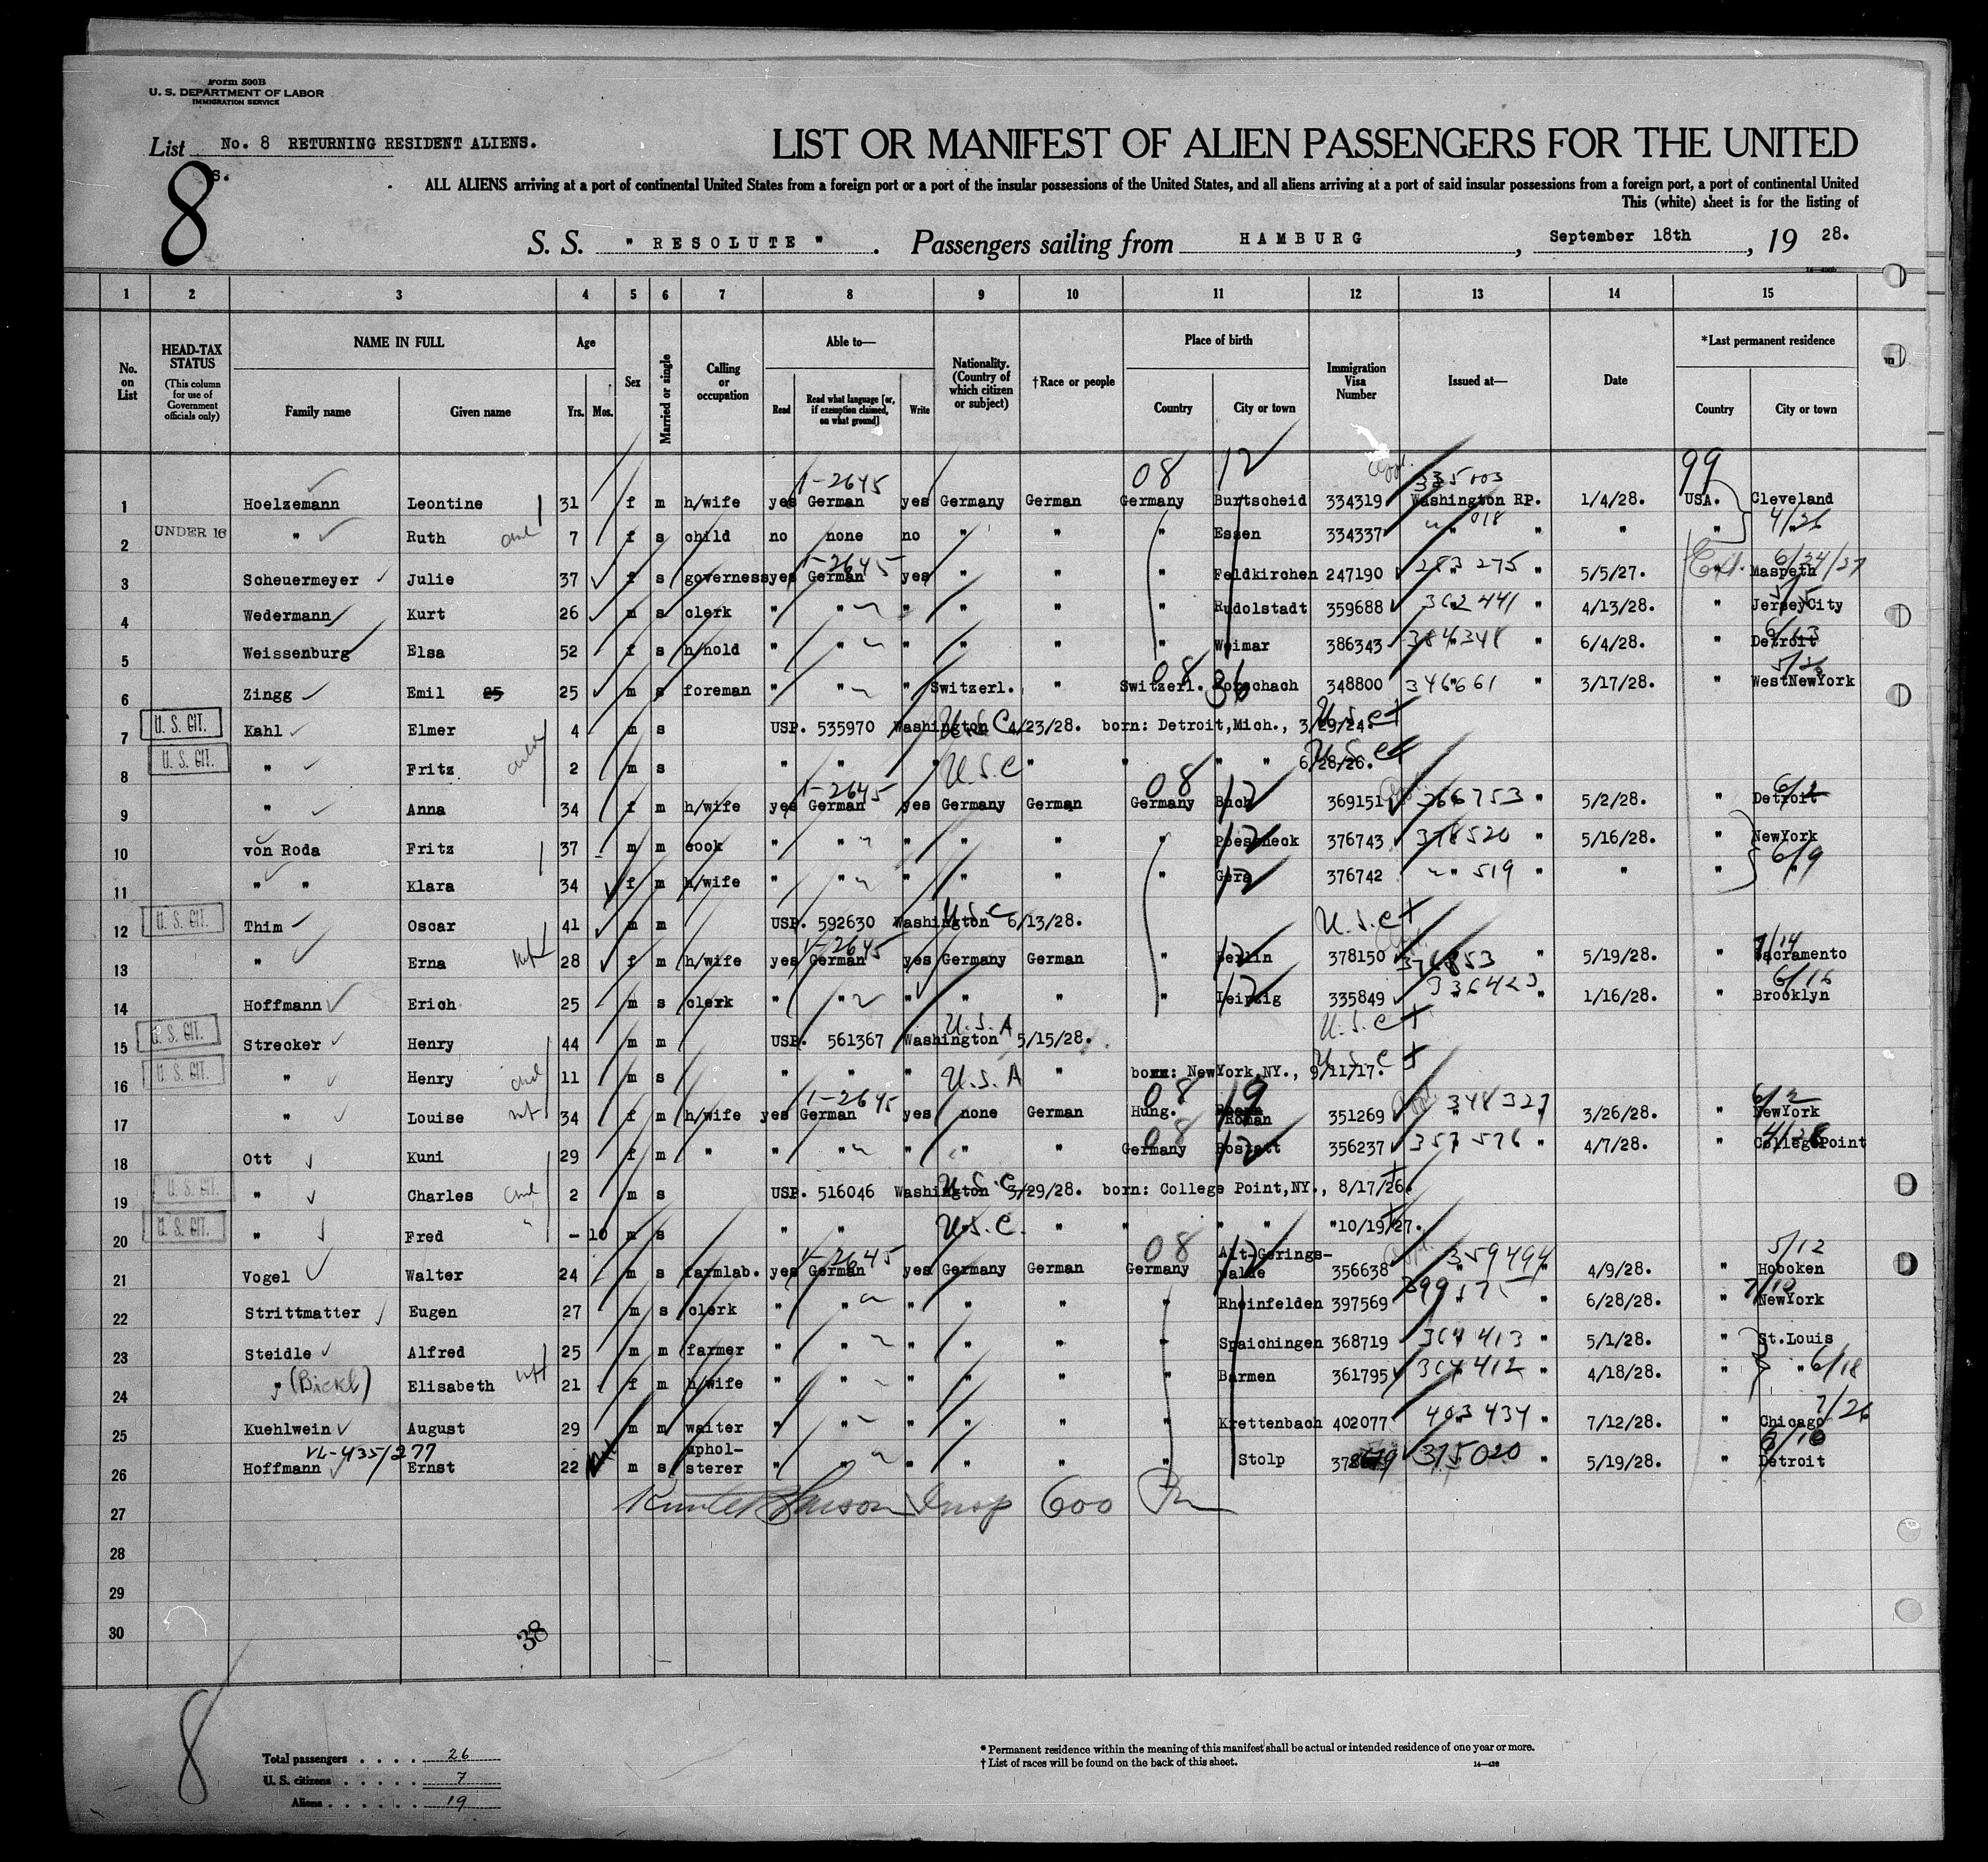 Form 500B
U. S. DEPARTMENT OF LABOR
IMMIGRATION SERVICE
List No. 8 RETURNING RESIDENT ALIENS.
s.
8
LIST OR MANIFEST OF ALIEN PASSENGERS FOR THE UNITED
ALL ALIENS arriving at a port of continental United States from a foreign port or a port of the insular possessions of the United States, and all aliens arriving at a port of said insular possessions from a foreign port, a port of continental United
This (white) sheet is for the listing of
S. S. " RESOLUTE " . Passengers sailing from HAMBURG , September 18th , 19 28.
1 2 3 4 5 6 7 8 9 10 11 12 13 14 15
No. on List
HEAD-TAX STATUS (This column for use of Government officials only)
NAME IN FULL
Family name Given name
Age
Yrs. Mos.
Sex
Married or single
Calling or occupation
Able to—
Read Read what language [or, if exemption claimed, on what ground] Write
Nationality. (Country of which citizen or subject)
†Race or people
Place of birth
Country City or town
Immigration Visa Number
Issued at—
Date
*Last permanent residence
Country City or town
08 12 99
1-2645 335003
1 Hoelzemann Leontine 31 f m h/wife yes German yes Germany German Germany Burtscheid 334319 Washington RP. 1/4/28. USA. Cleveland
4/26
2 UNDER 16 " Ruth 7 f s child no none no " " " Essen 334337 " 018 " " "
1-2645 6/24/27
3 Scheuermeyer Julie 37 f s governess yes German yes " " " Feldkirchen 247190 283 275 " 5/5/27. " Maspeth
4 Wedermann Kurt 26 m s clerk " " " " " " Rudolstadt 359688 362 441 " 4/13/28. " JerseyCity
6/13
5 Weissenburg Elsa 52 f s h/hold " " " " " " Weimar 386343 384348 " 6/4/28. " Detroit
08
6 Zingg Emil 25 25 m s foreman " " " Switzerl. " Switzerl. Rorschach 348800 346661 " 3/17/28. " WestNewYork
7 U. S. CIT. Kahl Elmer 4 m s USP. 535970 Washington 4/23/28. born: Detroit,Mich., 3/29/24. U.S.C
8 U. S. CIT. " Fritz 2 m s " " " U.S.C " " " " 6/28/26.
1-2645 08 12
9 " Anna 34 f m h/wife yes German yes Germany German Germany Buch 369151 366753 " 5/2/28. " Detroit
10 von Roda Fritz 37 m m cook " " " " " " Poessneck 376743 378520 " 5/16/28. " NewYork
6/9
11 " " Klara 34 f m h/wife " " " " " " Gera 376742 " 519 " " " "
12 U. S. CIT. Thim Oscar 41 m m USP. 592630 Washington 6/13/28. U.S.C
1-2645 7/14
13 " Erna 28 f m h/wife yes German yes Germany German " Berlin 378150 " 5/19/28. " Sacramento
14 Hoffmann Erich 25 m s clerk " " " " " " Leipzig 335849 336423 " 1/16/28. " Brooklyn
15 U. S. CIT. Strecker Henry 44 m m USP. 561367 Washington 5/15/28. U.S.A U.S.C
16 U. S. CIT. " Henry 11 m s " " " U.S.A " born: NewYork,NY., 9/11/17.
1-2645 08 19 6/2
17 " Louise 34 f m h/wife yes German yes none German Hung. Roman 351269 348327 3/26/28. " NewYork
08 12
18 Ott Kuni 29 f m " " " " " " Germany 356237 357576 " 4/7/28. " CollegePoint
19 U. S. CIT. " Charles 2 m s USP. 516046 Washington 3/29/28. born: College Point,NY., 8/17/26.
20 U. S. CIT. " Fred - 10 m s " " U.S.C. " " " " "10/19/27.
1-2645 08 12 5/12
21 Vogel Walter 24 m s farmlab. yes German yes Germany German Germany Alt-Gerings-walde 356638 359494 " 4/9/28. " Hoboken
22 Strittmatter Eugen 27 m s clerk " " " " " " Rheinfelden 397569 " 6/28/28. " NewYork
23 Steidle Alfred 25 m m farmer " " " " " " Spaichingen 368719 364 413 " 5/1/28. " St.Louis
6/18
24 " (Bickl) Elisabeth 21 f m h/wife " " " " " " Barmen 361795 364 412 " 4/18/28. " "
7/26
25 Kuehlwein August 29 m m waiter " " " " " " Krettenbach 402077 403 434 " 7/12/28. " Chicago
VL-435/277
26 Hoffmann Ernst 22 m s uphol-sterer " " " " " " Stolp 315020 " 5/19/28. " Detroit
27 Insp 600
28
29
30
38
8
Total passengers . . . . 26
U. S. citizens . . . . . 7
Aliens . . . . . . 19
* Permanent residence within the meaning of this manifest shall be actual or intended residence of one year or more.
† List of races will be found on the back of this sheet.